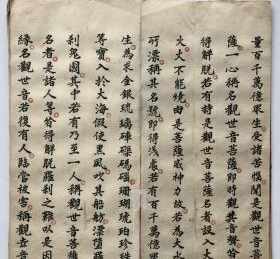 量百千萬億眾生受諸苦惱聞是觀世音菩
薩一心稱名觀世音菩薩即時觀其音聲皆
得解脫若有持是觀世音菩薩名者設入大
火火不能燒由是菩薩威神力故若為大水
所漂稱其名號即得淺處若有百千萬億眾
生為求金銀琉璃硨磲碼磯珊瑚琥珀珍珠
等寶入於大海假使黑風吹其船舫漂墮羅
剎鬼國其中若有乃至一人稱觀世音菩薩
名者是諸人等皆得解脫羅剎之難以是因
緣名觀世音若復有人臨當被害稱觀世音